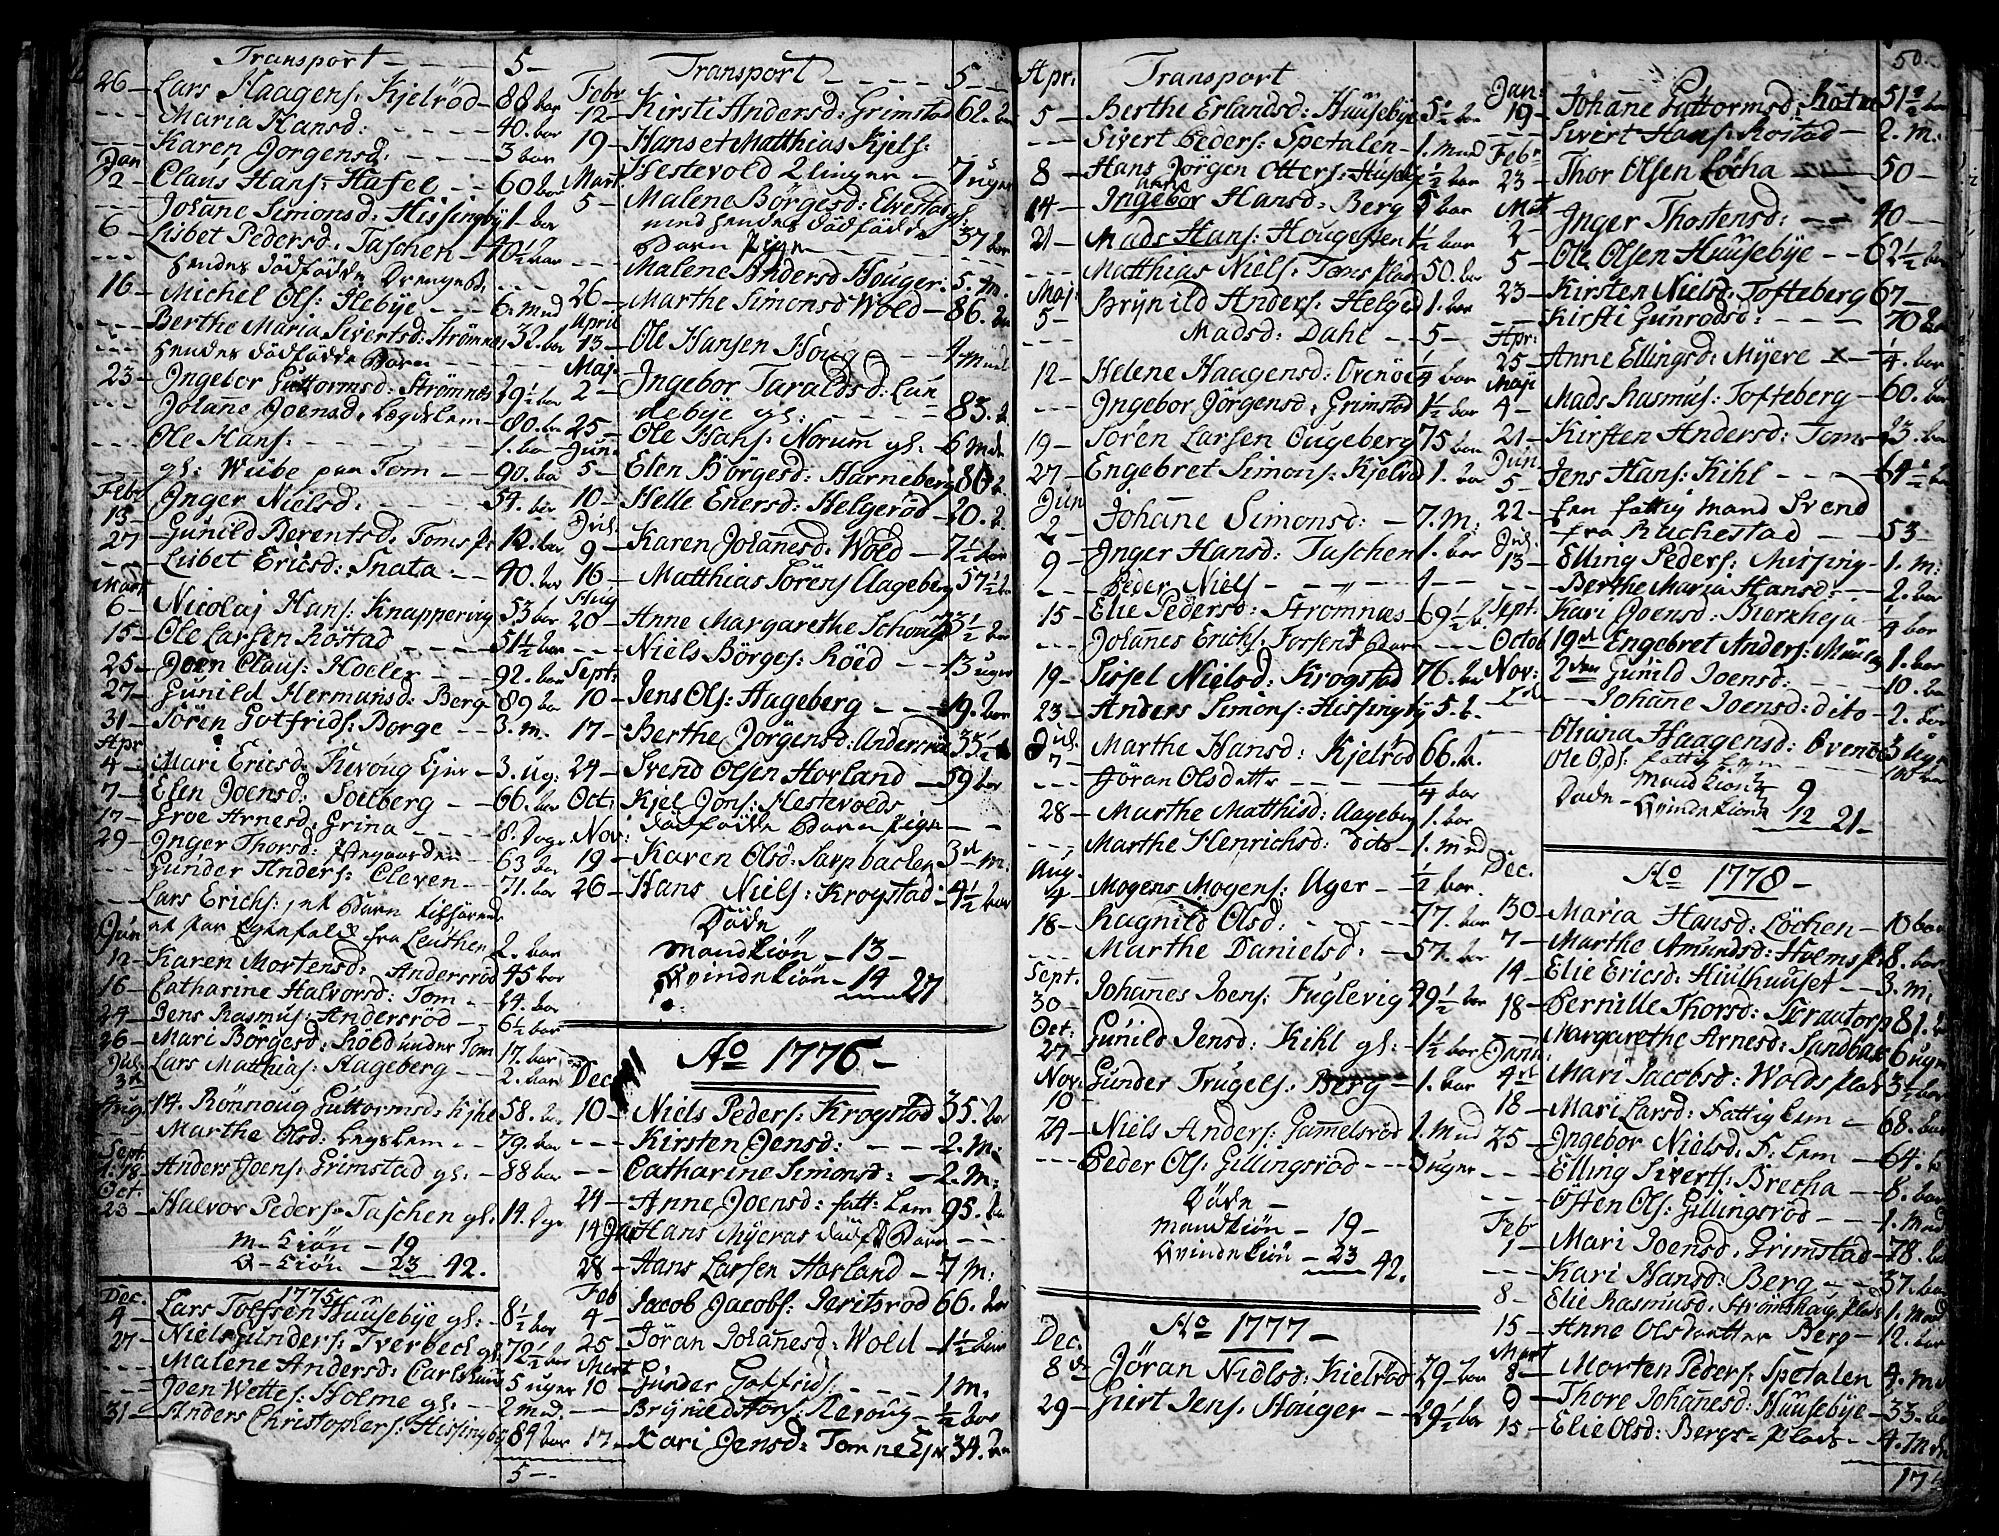 Transport - - - - 5-
26 - Lars Haagens: Kjelröd - 88 bar
- - - Maria Hansd: - - - - 40. bar
- - - Karen Jorgensd: - - - - 3 bar
Jan
2 - Claus Hans: Hafel - - 60 bar
- - - Johane Simonsd: Hissingby 1. bar
6 - Lisbet Pedersd: Taschen - 40½ bar
- - - hendes dödfödde Drengebd.
16 - Michel Ols: Ilebÿe - - - 6. mnd
- - - Berthe Maria Sivertsd: Strömnes 32. bar
- - - hendes dödfödde Barn - - -
23 - Ingebor Guttormsd: Strömnes 29½ bar
- - - Johane Joensd: Legdslem - 80. bar
- - - Ole Hans: - - - - 1. bar
- - - gl: Wiibe paa Tom - - 90. bar
Febr
13 - Inger Nielsd. - - - 54. bar
27 - Gunild Berentsd: Toms Pl 12. bar
- - - Lisbet Ericsd: Snata - - 40. bar
Mart
6 - Nicolaj Hans: Knappering 53 bar
15 - Ole Larsen Röstad - - - 51½ bar
25 - Joen Claus: Hoeler - - - 92. bar
27 - Gunild Hermansd: Berg 89 bar
31 - Sören Gotfrids: Borge - - 3. m.
Apr
4 - Mari Ericsd. Kevoug Ejer - 3. ug:
7 - Elen Joensd: Soelberg - - 66. bar
17 - Groe Arnesd: Grina - - - 8. Dage
29 - Inger Thorsd: - - 63 bar
Gunder Anders: Cleven - - 71. bar
Lars Erichs: et Barn tilhörende
et par Egtefolk fra Leuthen 2. bar
Jun
12 - Karen Mortensd: Andersröd 45 bar
16 - Catharine Halvorsd: Tom - - 24. bar
24 - Jens Rasmus: Andersröd - - 6½ bar
26 - Mari Börgesd: Röed under Tom 17. bar
Jul.
3d Lars Matthias: Aageberg - - 2. bar
Aug 14. Rönnoug Guttormsd: Kihl 58. bar
- - - Marthe Olsd: Legslem - - 79. bar
Sept.
18 - Anders Joens: Grimstad gl: - 88 bar
Oct.
23 - Halvor Peders: Taschen gl: - 14. Dge
M - Kiön - 19
Q - Kiön - 23 42.
1775
Dec.
4 - Lars Tolfsen Huusebye gl: - 8½ bar
27 - Niels Gunders: Tverbeck gl: 72½ bar
- - - Malene Andersd: Carlshuus 5 uger
- - - Joen Wettes: Holme gl: - 2 mnd.
31 - Anders Christophers: Hissingby 89 bar
5 - -
Transport - - - - 5 - -
Febr
12 - Kirsti Andersd: Grimstad 62. bar
19 - Hans et Matthias Kjels:
Hestevold 2 linger - - 7 uger
Mart
5 - Malene Börgesd: Elvestad gl.
med hendes dödfödde
Barn Pige - - - - 37 bar
- - - Malene Andersd Houger: 5. M.
26 - Marthe Simonsd Wold - 86. bar
April
13 - Ole Hansen Houg - - - 4. mnd
Maj.
2 - Ingebor Taraldsd: Lun
debÿe gl: - - - - 83. b.
25 - Ole Hans: Norum gl: - 6 mdr
Jun.
5 - Elen Börgesd: Harneberg 86 b.
10 - Helle Enersd: Helgeröd - 20. b.
Jul.
9 - Karen Johanesd: Wold - 7½ bar
16 - Matthias Sörens Aageberg 57½ bar
Aug
20 - Anne Margarethe Schou 33½ bar
- - - Niels Börges: Röed - - 13 uger
Sept:
10 - Jens Ols: Aageberg - - - 19. bar
17 - Berthe Jörgensd: Andersröd 35½ b
24 - Svend Olsen Horland - - 59 bar
Oct: Kjel Jons: Hestevolds
Nov: dödfödde Barn Pige - -
19 - Karen Olsd: Sarpbacken 3d M:
26 - Hans Niels: Krogstad - 4½ bar
Döde
Mandkiön - 13 -
Qvindekiön - 14 27
Ao 1776 -
Dec
10 - Niels Peders: Krogstad 35. bar
- - - Kirsten Jensd: - - - 2. M:
- - - Catharine Simonsd: - 2. M:
24 - Anne Joensd: fatt: Lem 95. bar
14 Jan Hans Myeras dödf: Barn - - -
28 - Hans Larsen Horland - 7 M:
Feb
4 - Jacob Jacobs: Jeritsrod 66. bar
25 - Jöran Johanesd: Wold - 1½ bar
Mart
10 - Gunder Gotfrids - - - - 1 M.
Brynild Hans: Revoug - ½ bar
17 - Kari Jensd: Tomne Ejer 34. bar
Apr: Transport
5 - Berthe Erlandsd: Huusebÿe 5½ bar
- - - Sivert Peders: Spetalen - 1. mnd
8 - Hans Jörgen Otters: Huseb ½ bar
14 - Ingebor Hansd: Berg 5 bar
21 - Mads Hans: Hougesten 1½ bar
- - - Matthias Niels: Toms Plads 50. bar
Maj
5 - Brÿnild Anders: Helged 1. bar
- - - Madsd: Dahl - - 5 -
12 - Helene Haagensd: Ovenöe ¼ bar
- - - Ingebor Jörgensd: Grimstad 1½ bar
19 - Sören Larsen Ougeberg 75 bar
27 - Engebret Simons: Kjelröd 1. bar
Jun
2 - Johane Simonsd: - 7. M:
9 - Inger Hansd: Taschen 1. bar
2 - - - Peder Niels - - „ - 4 - -
15 - Elie Pedersd: Strömnæs 69½ b.
- - - Johanes Erichs: Forsent Barn - - -
19 - Sisjel Nielsd: Krogstad 76. bar
23 - Anders Simons: Hissingby 5. b.
Jul.
7 - Marthe Hansd: Kjelröd 66. b.
- - - Jöran Olsdatter - - - ¼ bar
28 - Marthe Matthisd: Aageberg 1. bar
- - - Marthe Henrichsd: dito - 1. mnd
Aug.
4 - Mogens Mogens: Ager - ½ bar.
18 - Ragnild Olsd: - - - - 77. bar
- - - Marthe Danielsd: - - 57. bar
Sept.
30 - Johannes Joens: Fuglevig 49½ bar
Oct:
27 - Gunild Jensd: Kihl gl: - 1½ bar
Nov.
10 - Gunder Trugels: Berg - - 1. bar
24 - Niels Anders: Gamelsröd 1. Mnd
- - - Peder Ols: Gillingsröd - - - 3 uger
Döde -
Mandkiön - 19 -
Qvindekiön - 23 42.
Ao 1777 -
Dec.
8de Jöran Nidlsd: Kielröd 29 - bar
29 - Giert Jens: Houger - - 29½ bar
50.
Jan:
19 - Johane Guttormsd: Röstad 51½ bar
- - - Sivert Hans: Rostad - 2. m:
Febr
23 - Thor Olsen Löcha - - 50 -
Mart
2 - Inger Thostensd: - - - 40 - -
5 - Ole Olsen Huusebÿe - - 62½ bar
23 - Kirsten Nielsd: Tofteberg 67 -
- - - Kirsti Gunrodsd: - - - - 70 bar
Apr:
25 - Anne Ellingsd: Myere x - ¼. bar
Maji
4 - Mads Rasmus: Tofteberg - 60. bar
21 - Kirsten Andersd: Toms - 23. bar
Jun.
5 - Jens Hans: Kihl - - - 64½ bar
22 - En fattig mand Svend
fra Rachestad - - 53 -
Jul.
13 - Elling Peders: Missing - 1. M:
- - - Berthe Maria Hansd: - - 2. bar
Sept. Kari Joensd: Bierkheja ¼ bar
Octob 19de Engebret Anders: 1. bar
Nov: 2den Gunild Joensd: - - - - 10. bar
Johane Joensd: dito - 2. bar
- - - Oliana Haagensd: Ovenöe 3 uger
Ole Ols: fattig Lem - - 100 bar
Mandkiön 9
Döde - Qvindekiön 12 21 -
Ao 1778 -
Dec.
30 - Maria Hansd: Löchen - 10 bar
7 - Marthe Amundsd: Holms pl: 8. bar
14 - Elie Ericsd: Hiulhuuset - - 3. M:
18 - Pernille Thorsd: Scrautorp 81. b
- - - Margarethe Arnesd: Sandbæk 6 uger
Janu:
4de Mari Jacobsd: Wolds Plads 3½ bar
18 - Mari Larsd: Fattig Lem - 68. bar
25 - Ingebor Nielsd: F. Lem - 64. b
- - - Elling Siverts: Brecha - - 8. bar
- - - Osten Ols: Gillingsröd - - 1. Mnd
Feb
1 - Mari Joensd: Grimstad - 78. bar
- - - Kari Hansd: Berg - - 37. bar
8 - Elie Rasmusd: Strömshaug plads 1. Mnd
15 - Anne Olsdatter Berg - 12. bar
Mart
8 - Morten Peders: Spetalen 4. Mnd
9 - Thore Johanesd: Huusebÿe - 33. bar
15 - Elie Olsd: Bergs = Plads - 4. Mdr
17